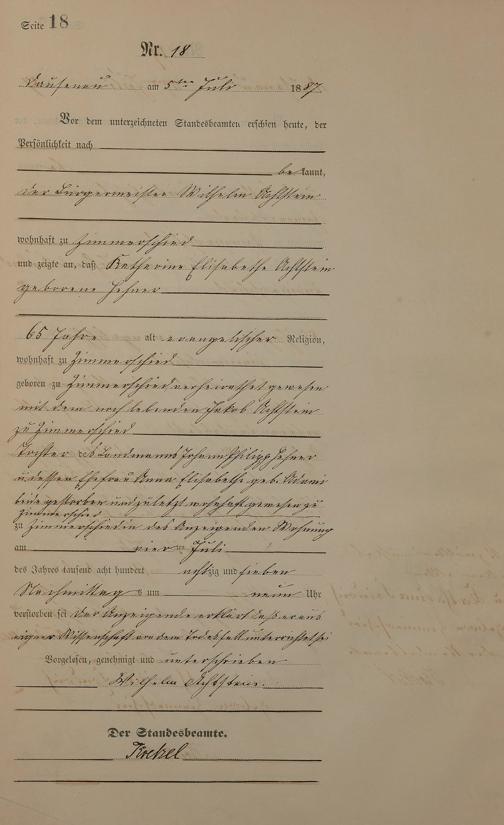 Seite 18
Nr. 18
Dausenau am 5ten Juli 1887
Vor dem unterzeichneten Standesbeamten erschien heute, der
Persönlichkeit nach
bekannt,
der Bürgermeister Wilhelm Achtstein
wohnhaft zu Zimmerschied
und zeigte an, daß Katharine Elisabethe Achtstein
geborene
65 Jahre alt evangelischer Religion,
wohnhaft zu Zimmerschied
geboren zu Zimmerschied verheirathet gewesen
mit dem noch lebenden Jakob Achtstein
zu Zimmerschied
Tochter des Landmanns Johann Philipp
u dessen Ehefrau Anna Elisabethe geb.
beide gestorben und zuletzt wohnhaft gewesen zu
Zimmerschied
zu Zimmerschied in des Anzeigenden Wohnung
am vierten Juli
des Jahres tausend acht hundert achtzig und sieben
Nachmittags um neun Uhr
verstorben sei Der Anzeigende erklärt daß er aus
eigner Wissenschaft von dem Todesfall unterrichtet sei
Vorgelesen, genehmigt und unterschrieben
Wilhelm Achtstein.
Der Standesbeamte.